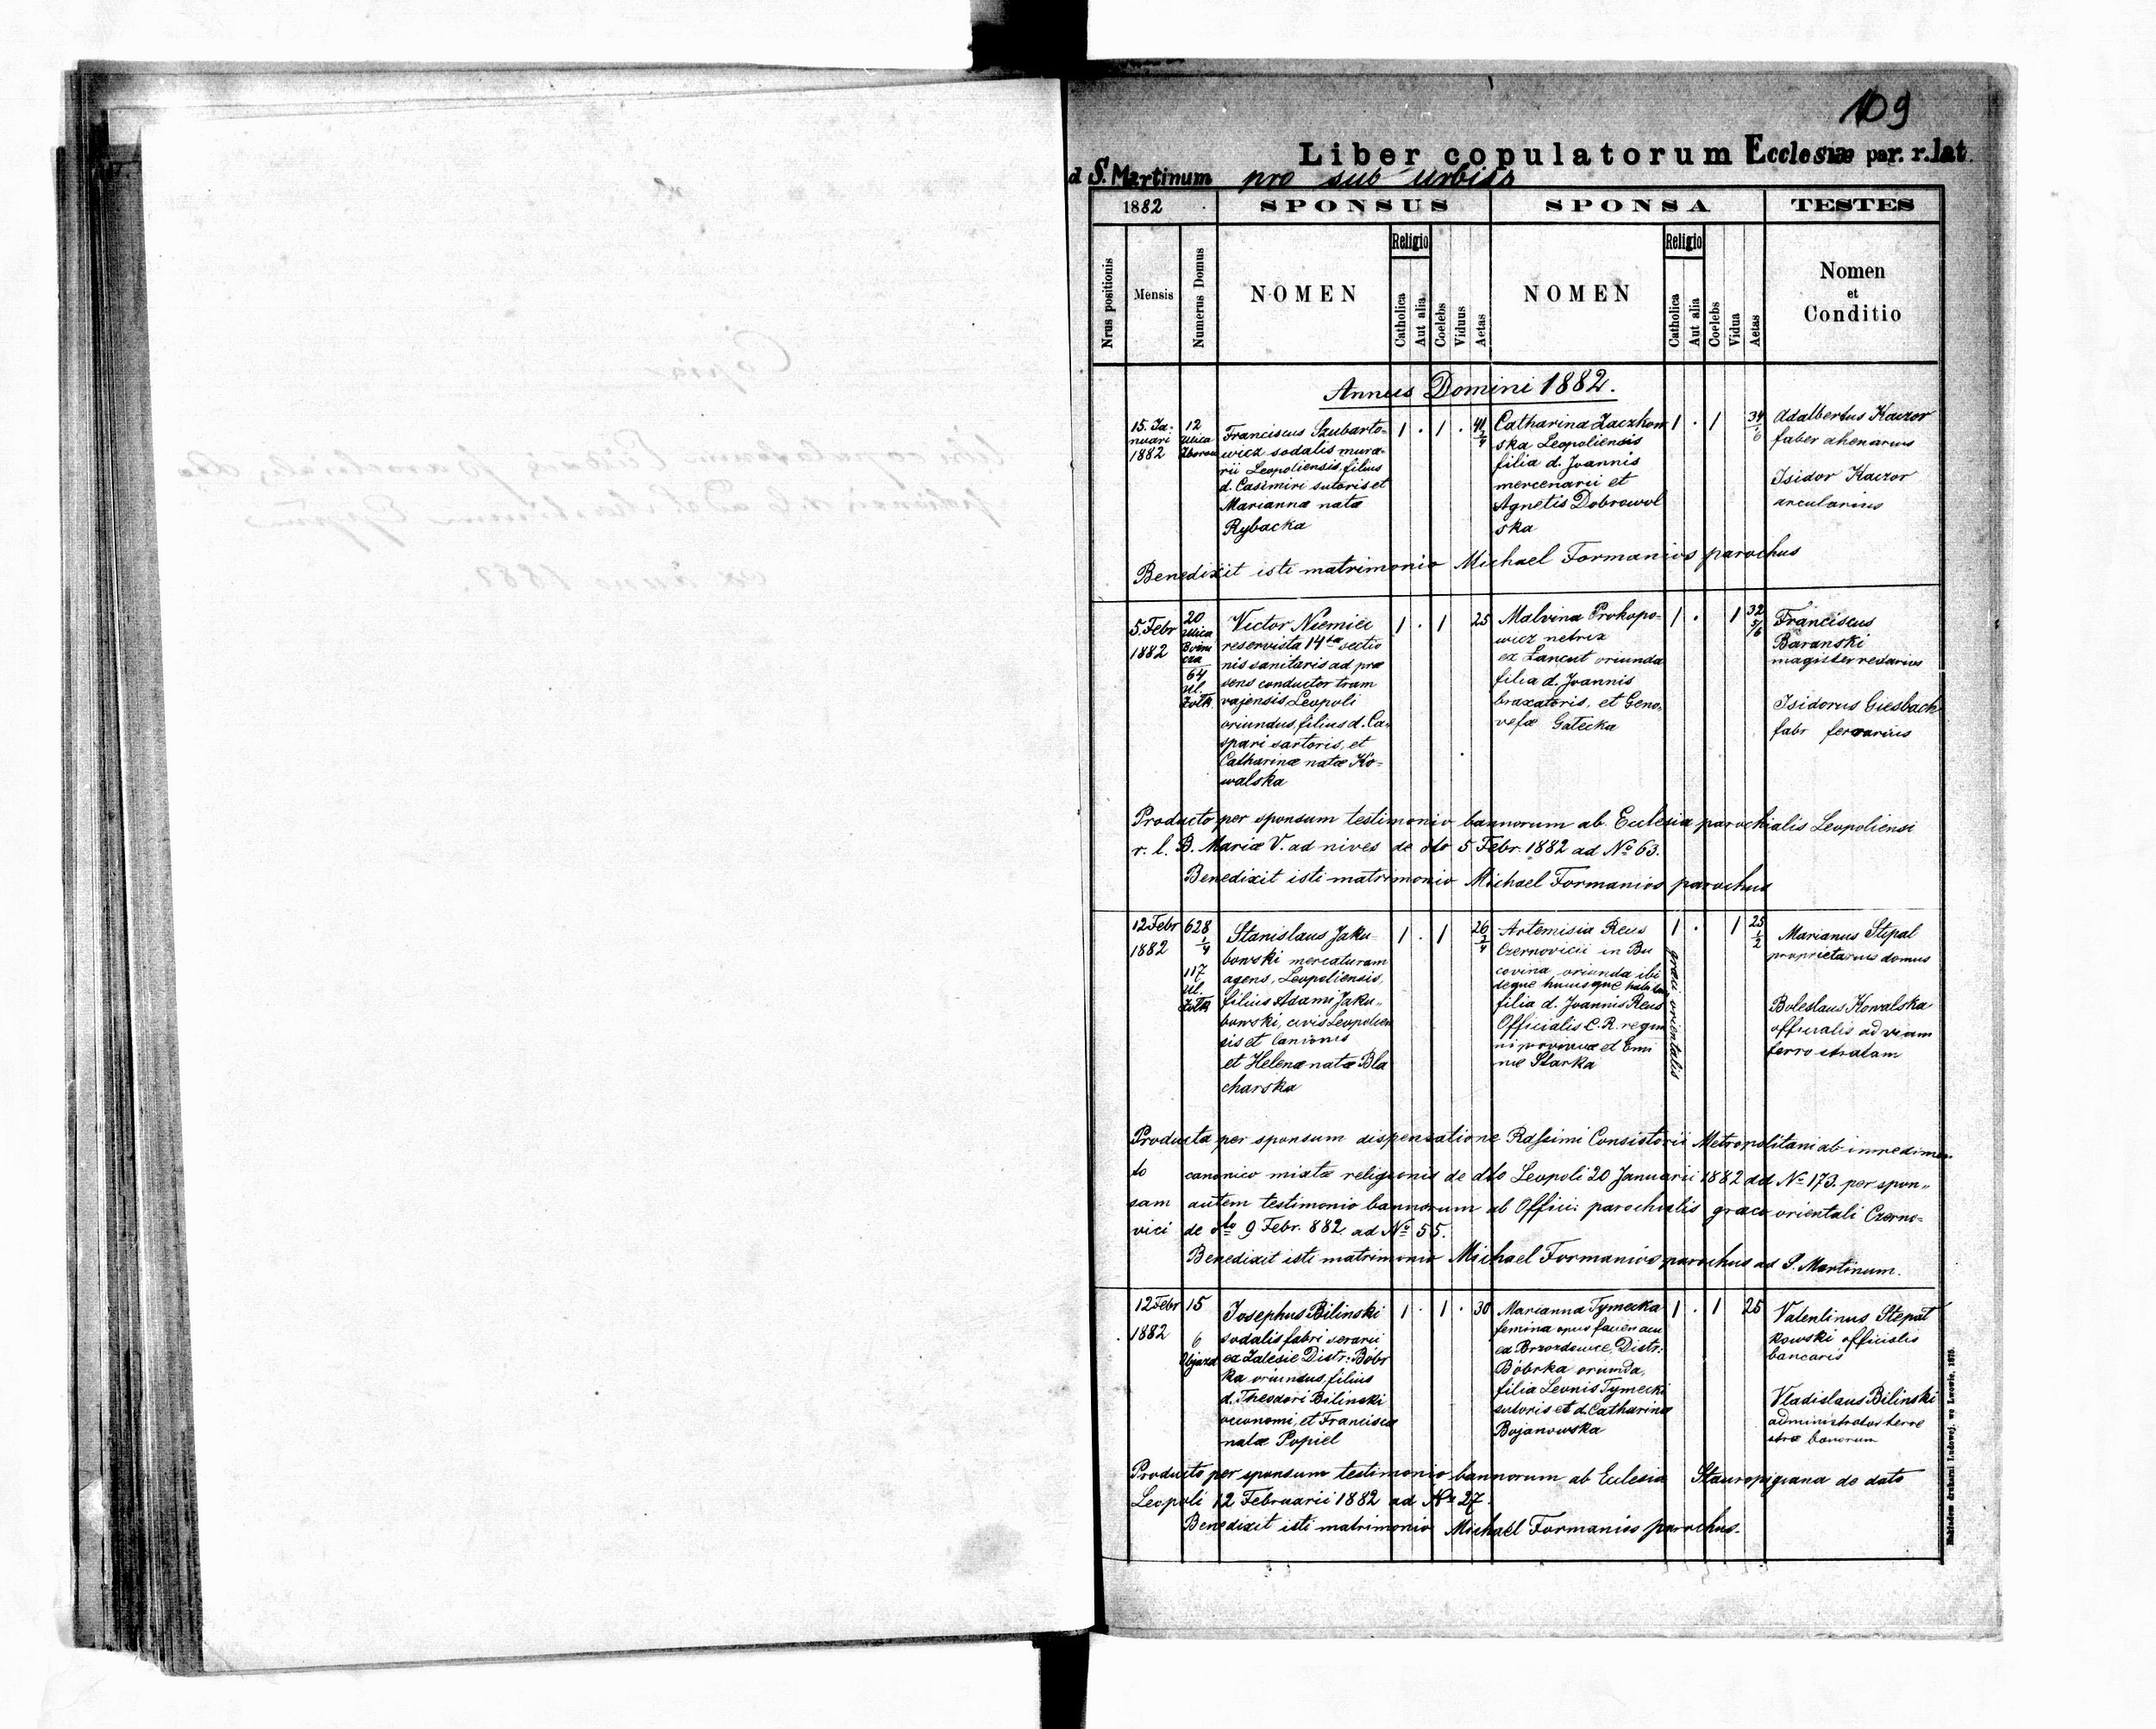 109
Liber copulatorum Ecclesiæ par. r. lat.
d S. Martinum pro sub urbiis
1882
SPONSUS
SPONSA
TESTES
Nrus positionis
Mensis
Numerus Domus
NOMEN
Religio
Catholica
Aut alia
Coelebs
Viduus
Aetas
NOMEN
Religio
Catholica
Aut alia
Coelebs
Vidua
Aetas
Nomen
et
Conditio
Annus Domini 1882.
15. Ja-
nuari
1882
12
ulica
Franciscus Szubarto-
wicz sodalis mura-
rii Leopoliensis, filius
d. Casimiri sutoris et
Mariannæ natæ
Rybacka
1 . 1 . 41
Catharina Zaczkow
ska Leopoliensis
filia d. Joannis
mercenarii et
Agnetis Dobrowol
ska
1 . 1 34
Adalbertus Kaczor
faber ahenarius
Isidor Kaczor
arcularius
Benedixit isti matrimonio Michael Formanios parochus
5. Febr
1882
20
ulica
64
ul.
Żołk.
Victor Niemiec
reservista 14ta sectio
nis sanitaris ad præ
sens conductor tram
vajensis, Leopoli
oriundus, filius d. Ca-
spari sartoris, et
Catharinæ natæ Ko-
walska
1 . 1 25
Malvina Prokopo-
wicz netrix
ex Lancut oriunda
filia d. Joannis
braxatoris, et Geno-
vefæ Gatecka
1 . 1 32 5/6
Franciscus
Baranski
magister redarius
Isidorus Giesbach
fabr ferrarius
Producto per sponsum testimonio bannorum ab Ecclesia parochialis Leopoliensi
r. l. B. Mariæ V. ad nives de dto 5 Febr. 1882 ad No 63.
Benedixit isti matrimonio Michael Formanios parochus
12 Febr
1882
628
1/4
117
ul.
Żołk
Stanislaus Jaku-
bowski mercaturam
agens, Leopoliensis,
filius Adami Jaku-
bowski, civis Leopolien
sis et
et Helenæ natæ Bla
charska
1 . 1 26
Artemisia Reus
Czernovicii in Bu
covina oriunda ibi
deque hucusque
filia d. Joannis Reus
Officialis C. R. regim
et Emi
næ Starka
1 . 1 25 1/2
græci orientalis
Marianus Stepal
proprietarius domus
Boleslaus Kowalska
officialis ad viam
ferro stratam
Producta per sponsum dispensatione Rdssimi Consistorii Metropolitani ab impedimen
to canonico mixtæ religionis de dto Leopoli 20 Januarii 1882 ad No 173. per spon-
sam autem testimonio bannorum ab Offici. parochialis græco orientali Czerno-
vici de dto 9 Febr. 882 ad No 55.
Benedixit isti matrimonio Michael Formanios parochus ad S. Martinum.
12 Febr
1882
15
6
Objazd
Josephus Bilinski
sodalis fabri serarii
ex Zalesie Distr. Bóbr
ka oriundus, filius
d. Theodori Bilinski
oeconomi, et Franciscæ
natæ Popiel
1 . 1 . 30
Marianna Tymecka
femina opus faciens acu
ex Brzozdowce Distr.
Bóbrka oriunda,
filia Leonis Tymecki
sutoris et d. Catharinæ
Bojanowska
1 . 1 25
Valentinus Stepat
kowski officialis
bancaris
Vladislaus Bilinski
administrator
bonorum
Producto per sponsum testimonio bannorum ab Ecclesia Stauropigiana de dato
Leopoli 12 Februarii 1882 ad Nr 27.
Benedixit isti matrimonio Michael Formanios parochus.
Nakładem drukarni Ludowej, we Lwowie, 1875.